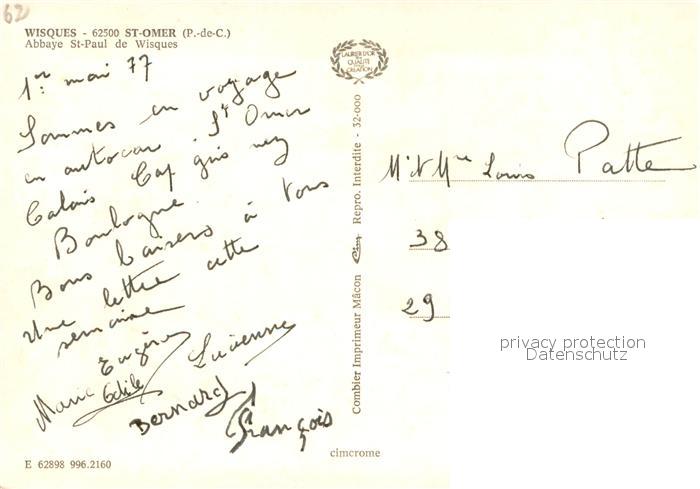 62
WISQUES - 62500 ST-OMER (P.-de-C.)
Abbaye St-Paul de Wisques
1er mai 77
Sommes en voyage
en autocar St Omer
Calais Cap gris nez
Boulogne.
Bons baisers à tous
Une lettre cette
semaine
Eugène Lucienne
Marie Odile
Bernard
François
E 62898 996.2160
LAURIER D'OR
DE QUALITÉ
CRÉATION
Combier Imprimeur Mâcon Cim Repro. Interdite - 32-000
cimcrome
Mr et Mme Louis Patte
38
29
privacy protection
Datenschutz